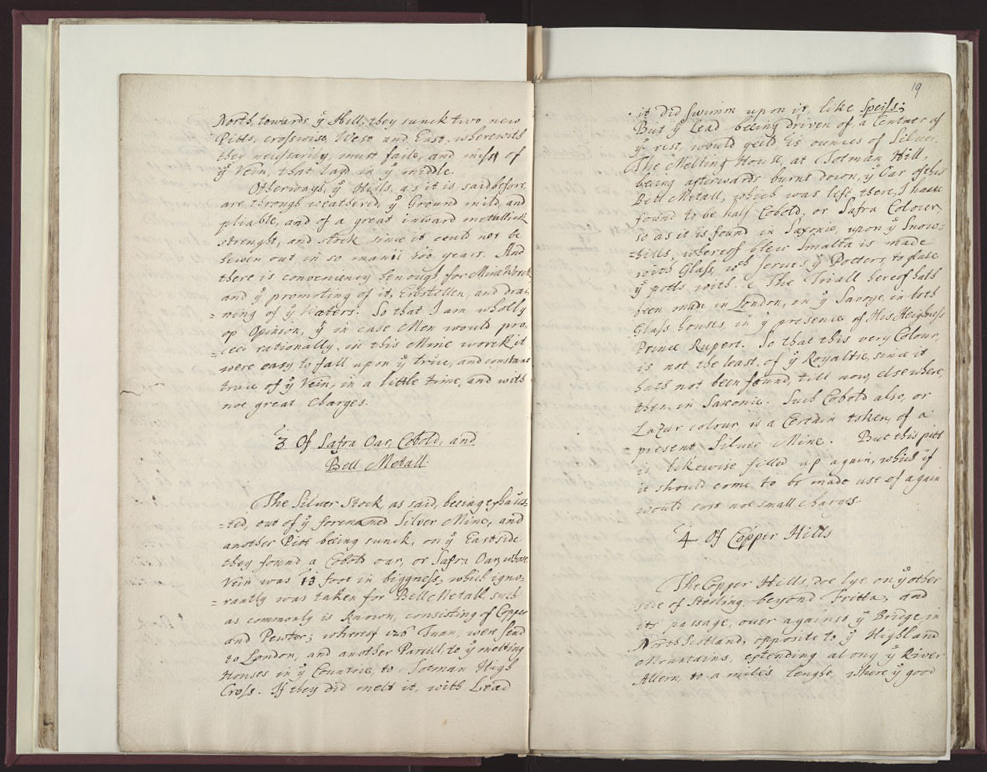 North, towards ye Hill, they sunck two new
Pitts, crosswise, West and East, wherewith
they necessarily, must faile, and misst of
ye Vein, that layd in ye middle.
Otherways, ye Hills, as it is said before,
are through weathered, ye Ground mild, and
pliable, and of a great inward metallick
strenght, and stock since it could not be
hewen out in so manii 100 years. And
there is conveniency Enough for MineWorck
and ye promoting of it, Erbstellen, and drai-
=ning of ye Waters. So that I am wholly
op Opinion, yt in case Men would pro-
=ceed rationally, in this Mine worck it
were easy to fall upon ye true, and constant
true of ye Vein, in a little time, and with
not great Charges.
3 Of Safra Oar, Cobold, and
Bell Metall
The Silver Stock, as said, beeing exhaus-
=ted, out of ye forenamed Silver Mine, and
another Pitt being sunck, on ye Eastside
they found a Cobolt oar, or Safra Oar, whose
Vein was 13 foot in biggness, which igno-
=rantly was taken for Bell Metall such
as commonly is known, consisting of Copper
and Pewter; whereof Tunn, were send
to London, and another Parcell to ye melting
Houses in ye Countrie, to Totman High
Cross. If they did melt it, with Lead
19
it did swimm upon it like Speiss;
But ye Lead beeing driven of a Centner of
ye rest, would yeeld ounces of Silver.
The Melting House, at Totman Hill,
being afterwards burnt down, ye Oar of this
Bell Metall, which was left there, I have
found to be half Cobold, or Safra Colour,
so as it is found in Saxonie, upon ye Snow-
=hills, whereof blew Smalta is made
with Glass, wch serves ye Potters, to glase
ye potts with. The Triall hereof hath
been made in London, in ye Savoye in both
Glass houses, in ye presence of His Heighness
Prince Rupert. So that this very Colour,
is not the least, of ye Royaltie, since it
hath not been found, till now, elsewhere,
then in Saxonie. Such Cobold also, or
Lazur colour, is a Certain token, of a
present Silver Mine. But this pitt
is likewise filled up again, which if
it should come, to be made use of again
would cost not small charges.
4 Of Copper Hills
The Copper Hills, doe lye on ye other
side of Sterling, beyond Fritta, and
its passage, over against ye Bridge, in
North Scotland, opposite to ye Highland
Mountains, extending along ye River
Allern, to a miles lenght, where ye good